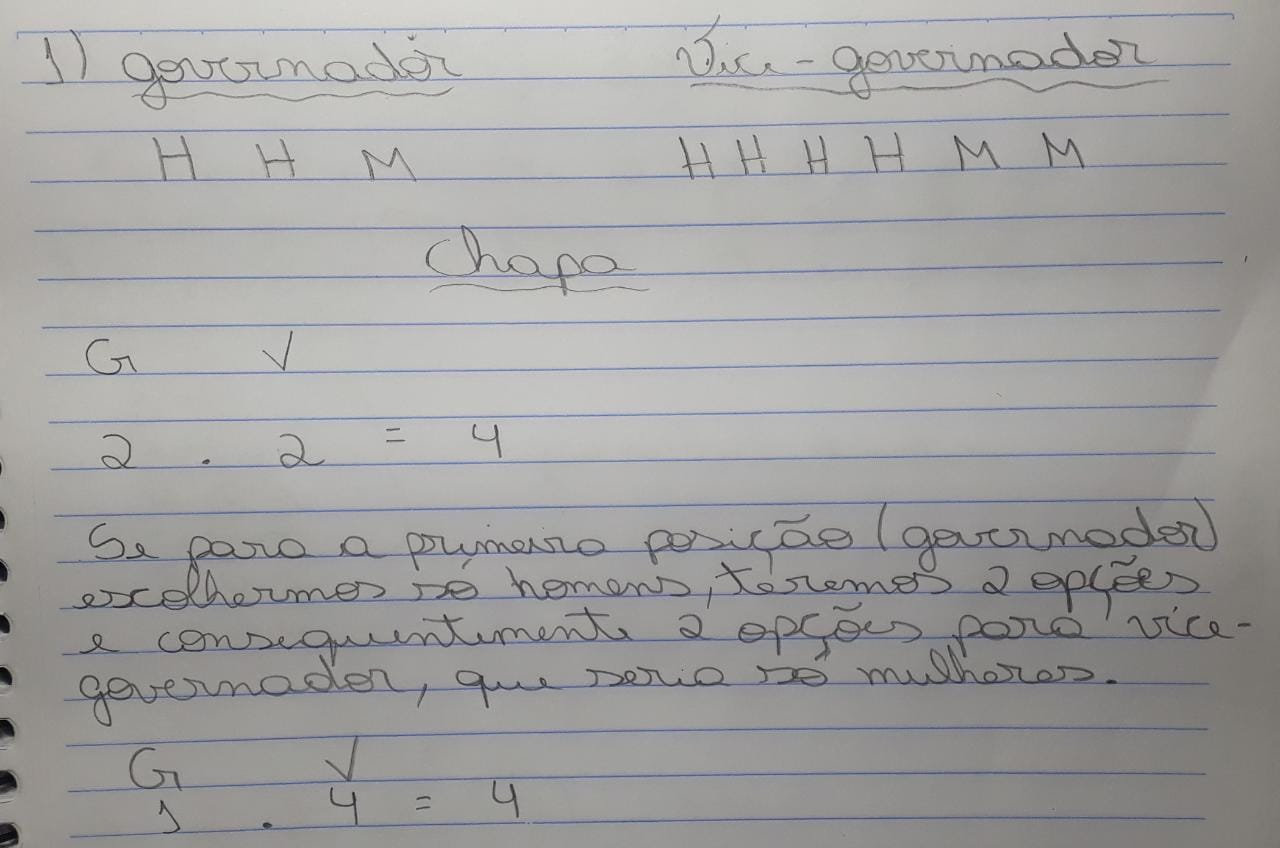 1) governador Vice-governador
H H M H H H H M M
Chapa
G V
2 . 2 = 4
Se para a primeira posição (governador)
escolhermos só homens, teremos 2 opções
e consequentemente 2 opções para vice-
governador, que seria só mulheres.
G V
1 . 4 = 4